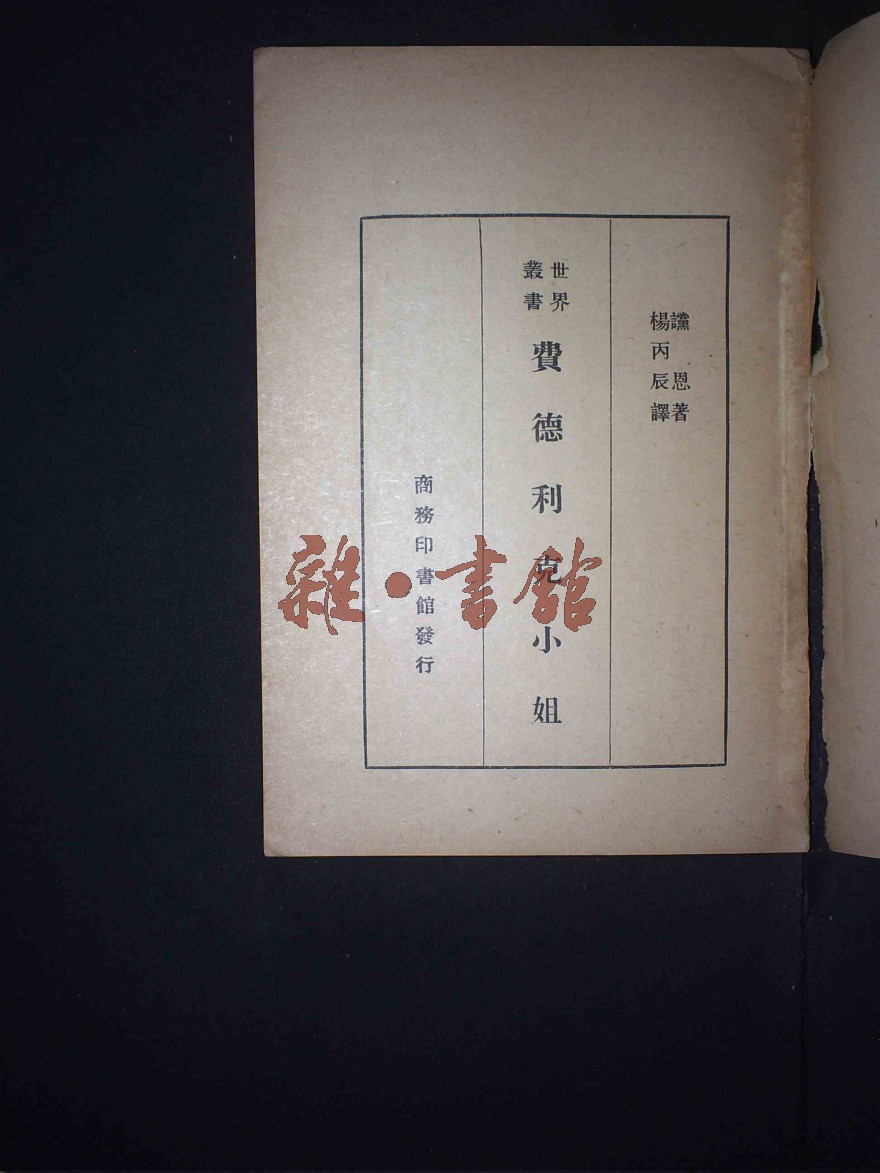 讜恩著
楊丙辰譯
世界
叢書
費德利克小姐
商務印書館發行
雜·書館